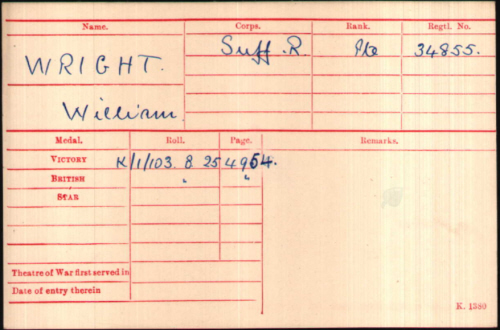 Name. Corps. Rank. Regtl. No.
WRIGHT. Suff. R. Pte 34855.
William.
Medal. Roll. Page. Remarks.
VICTORY K/1/103.B.25 4964.
BRITISH " "
STAR
Theatre of War first served in
Date of entry therein
K. 1380